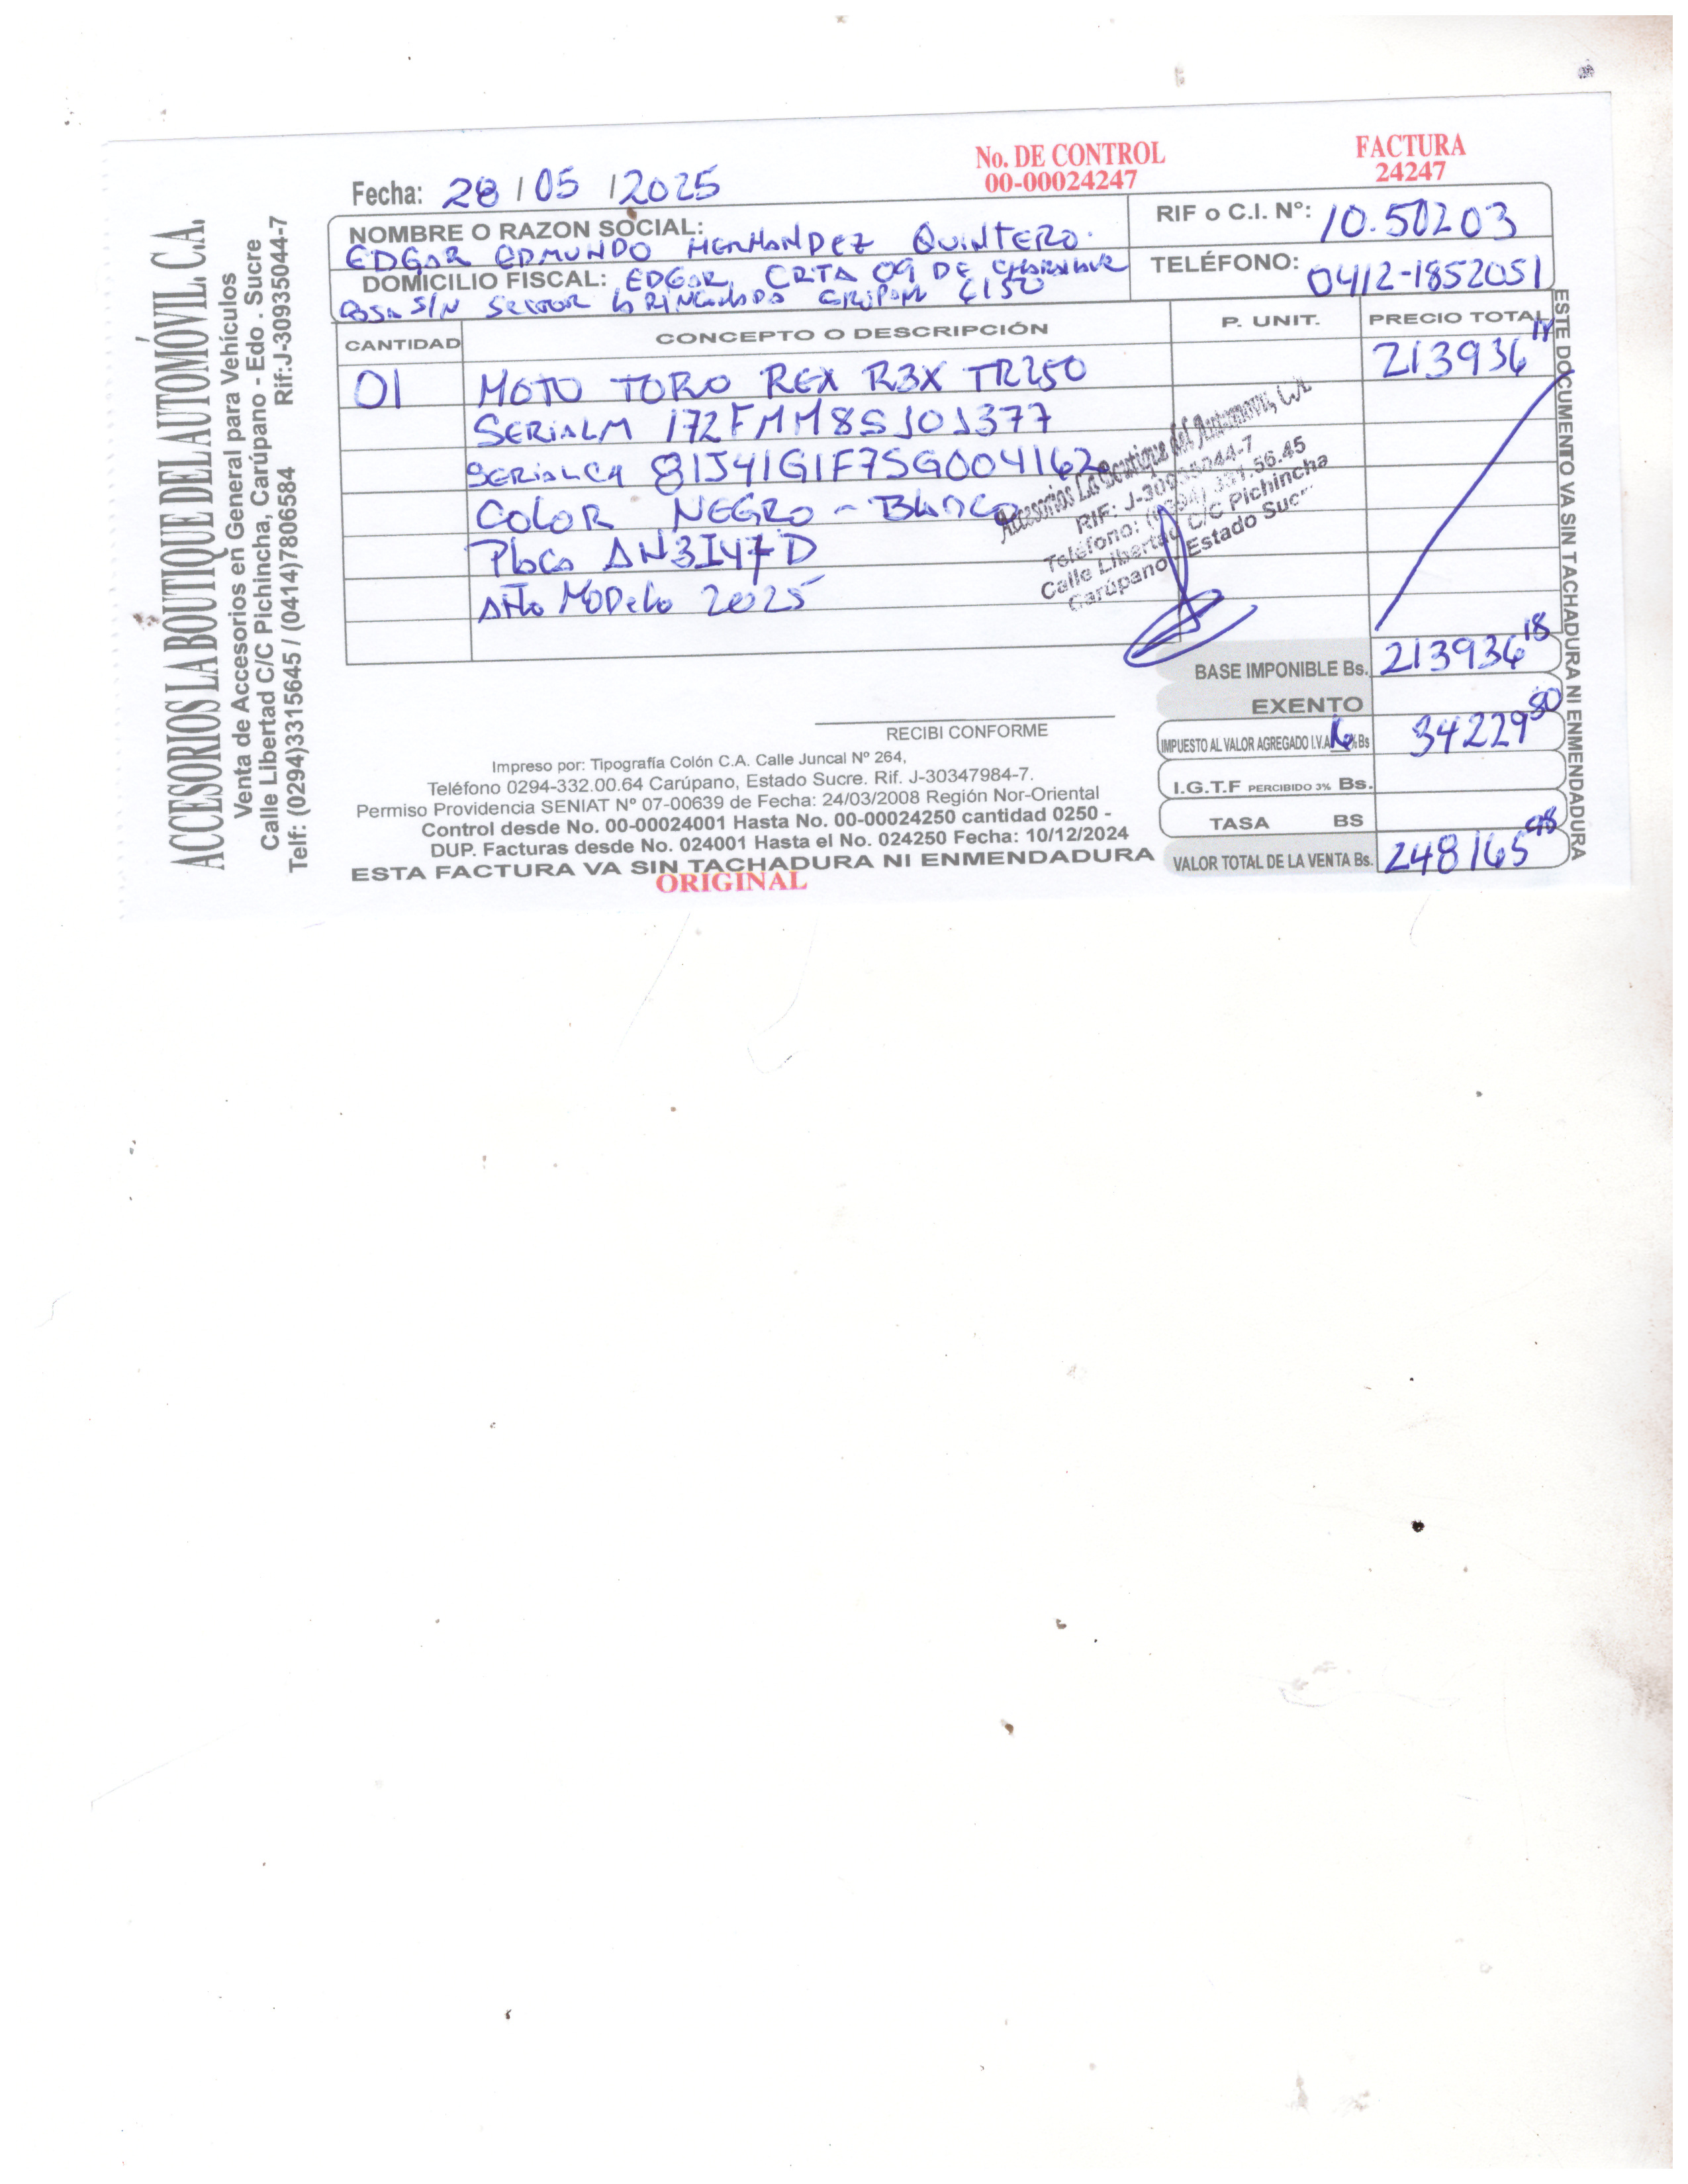 ACCESORIOS LA BOUTIQUE DEL AUTOMÓVIL C.A.
Venta de Accesorios en General para Vehículos
Calle Libertad C/C Pichincha, Carúpano - Edo . Sucre
Telf: (0294)3315645 / (0414)7806584 Rif:J-30935044-7
No. DE CONTROL
00-00024247
FACTURA
24247
Fecha: 28 / 05 / 2025
NOMBRE O RAZON SOCIAL:
EDGAR EDMUNDO HERNANDEZ QUINTERO.
RIF o C.I. Nº: 10.50203
DOMICILIO FISCAL: EDGAR, CRTA 09 DE
TELÉFONO: 0412-1852051
CASA S/N SECTOR
CANTIDAD CONCEPTO O DESCRIPCIÓN P. UNIT. PRECIO TOTAL
01 MOTO TORO REX R3X TR250 213936 18
SERIALM 172FMM8SJ01377
SERIALCA 81J41G1F7SG004162
COLOR NEGRO - BLANCO
Placa AN3I47D
AÑO MODELO 2025
Accesorios La Boutique del Automovil, C.A.
RIF: J-30935044-7
Teléfono: (0294) 331.56.45
Calle Libertad C/C Pichincha
Carúpano Estado Sucre
BASE IMPONIBLE Bs. 213936 18
EXENTO
IMPUESTO AL VALOR AGREGADO I.V.A 16 % Bs 34229 80
I.G.T.F PERCIBIDO 3% Bs.
TASA BS
VALOR TOTAL DE LA VENTA Bs. 248165 98
RECIBI CONFORME
Impreso por: Tipografía Colón C.A. Calle Juncal Nº 264,
Teléfono 0294-332.00.64 Carúpano, Estado Sucre. Rif. J-30347984-7.
Permiso Providencia SENIAT Nº 07-00639 de Fecha: 24/03/2008 Región Nor-Oriental
Control desde No. 00-00024001 Hasta No. 00-00024250 cantidad 0250 -
DUP. Facturas desde No. 024001 Hasta el No. 024250 Fecha: 10/12/2024
ESTA FACTURA VA SIN TACHADURA NI ENMENDADURA
ORIGINAL
ESTE DOCUMENTO VA SIN TACHADURA NI ENMENDADURA